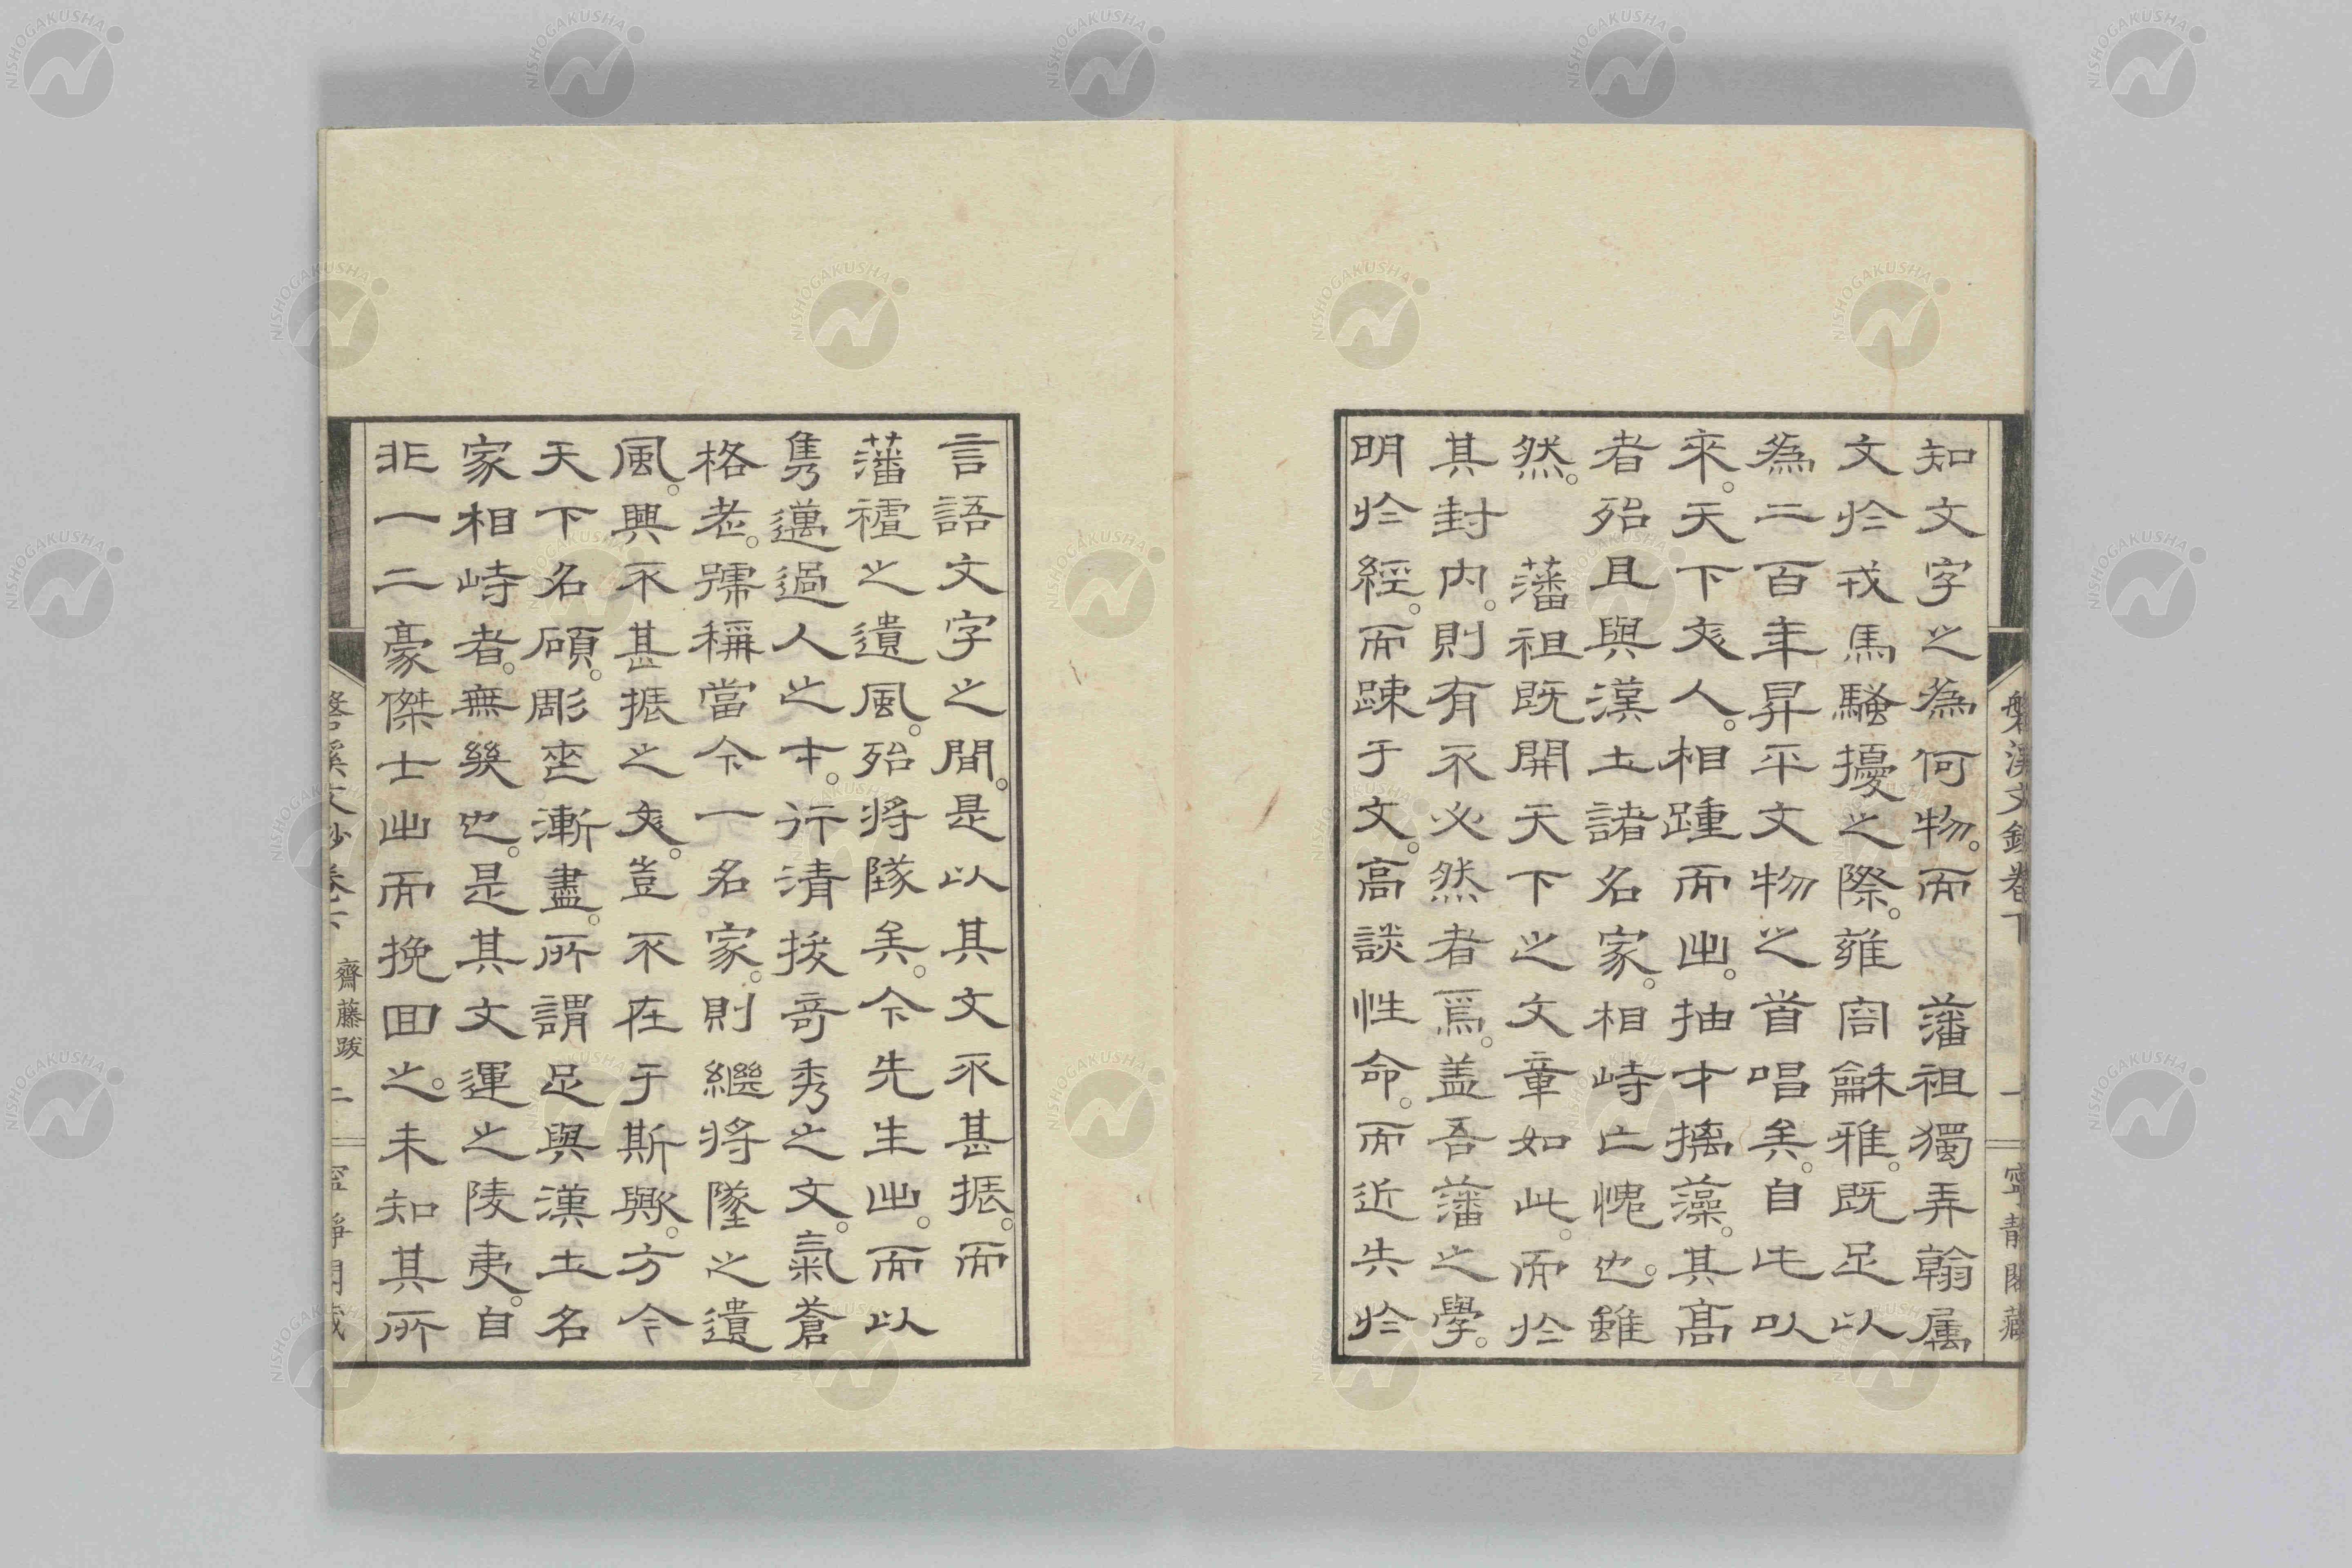 知文字之爲何物。而　藩祖獨弄翰属
文於戎馬騷擾之際。雍容龢雅。既足以
爲二百年昇平文物之首唱矣。自此以
來。天下文人。相踵而出。抽才摛藻。其高
者殆且與漢土諸名家。相峙亡愧也。雖
然。　藩祖既開天下之文章如此。而於
其封内。則有不必然者焉。蓋吾藩之學。
明於經。而踈于文。高談性命。而近失於
言語文字之間。是以其文不甚振。而
藩禮之遺風。殆將隊矣。今先生出。而以
雋邁過人之才。行清拔奇秀之文。氣蒼
格老。號稱當今一名家。則繼將墜之遺
風。興不甚振之文。豈不在于斯歟。方今
天下名碩。彫喪漸盡。所謂足與漢土名
家相峙者。無幾也。是其文運之陵夷。自
非一二豪傑士出而挽回之。未知其所
磐溪文鈔卷下　一　寧靜閣藏
磐溪文鈔卷下　齋藤跋　二　寧靜閣藏
NISHOGAKUSHA